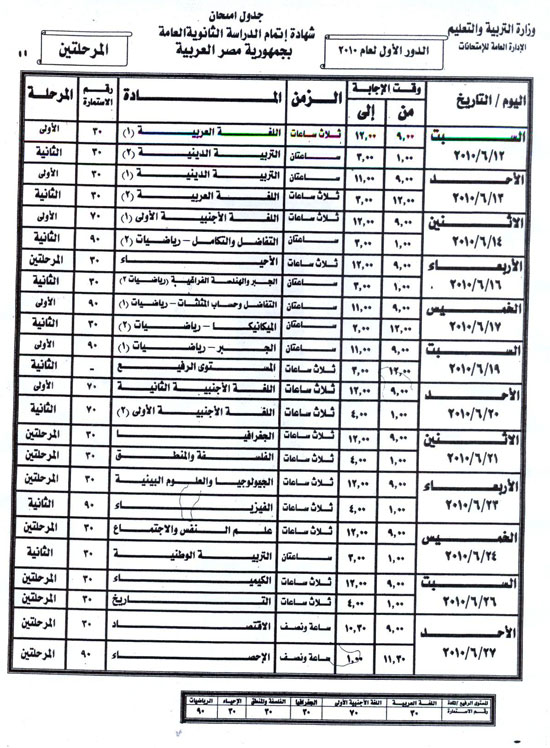 وزارة التربية والتعليم
الإدارة العامة للإمتحانات
جدول امتحان
شهادة إتمام الدراسة الثانوية العامة
بجمهورية مصر العربية
الدور الأول لعام ٢٠١٠
المرحلتين
١١
اليوم / التاريخ وقت الإجابة الـزمـن المـــادة رقم الاستمارة المرحلة
من إلى
السبت ٢٠١٠/٦/١٢ ٩,٠٠ ١٢,٠٠ ثلاث ساعات اللغة العربية (١) ٣٠ الأولى
١,٠٠ ٣,٠٠ ساعتان التربية الدينية (٢) ٣٠ الثانية
الأحد ٢٠١٠/٦/١٣ ٩,٠٠ ١١,٠٠ ساعتان التربية الدينية (١) ٣٠ الأولى
١٢,٠٠ ٣,٠٠ ثلاث ساعات اللغة العربية (٢) ٣٠ الثانية
الاثنين ٢٠١٠/٦/١٤ ٩,٠٠ ١٢,٠٠ ثلاث ساعات اللغة الأجنبية الأولى (١) ٧٠ الأولى
١,٠٠ ٣,٠٠ ساعتان التفاضل والتكامل – رياضيات (٢) ٩٠ الثانية
الأربعاء ٢٠١٠/٦/١٦ ٩,٠٠ ١٢,٠٠ ثلاث ساعات الأحياء ٣٠ المرحلتين
١,٠٠ ٣,٠٠ ساعتان الجبر والهندسة الفراغية (رياضيات ٢) ٣٠ الثانية
الخميس ٢٠١٠/٦/١٧ ٩,٠٠ ١١,٠٠ ساعتان التفاضل وحساب المثلثات – رياضيات (١) ٩٠ الأولى
١٢,٠٠ ٢,٠٠ ساعتان الميكانيكا – رياضيات (٢) ٣٠ الثانية
السبت ٢٠١٠/٦/١٩ ٩,٠٠ ١١,٠٠ ساعتان الجبر – رياضيات (١) ٩٠ الأولى
١٢,٠٠ ٣,٠٠ ثلاث ساعات المستوى الرفيع - الثانية
الأحد ٢٠١٠/٦/٢٠ ٩,٠٠ ١٢,٠٠ ثلاث ساعات اللغة الأجنبية الثانية ٧٠ الأولى
١,٠٠ ٤,٠٠ ثلاث ساعات اللغة الأجنبية الأولى (٢) ٧٠ الثانية
الاثنين ٢٠١٠/٦/٢١ ٩,٠٠ ١٢,٠٠ ثلاث ساعات الجغرافيا ٣٠ المرحلتين
١,٠٠ ٤,٠٠ ثلاث ساعات الفلسفة والمنطق ٣٠ المرحلتين
الأربعاء ٢٠١٠/٦/٢٣ ٩,٠٠ ١٢,٠٠ ثلاث ساعات الجيولوجيا والعلوم البيئية ٣٠ المرحلتين
١,٠٠ ٤,٠٠ ثلاث ساعات الفيزياء ٩٠ الثانية
الخميس ٢٠١٠/٦/٢٤ ٩,٠٠ ١٢,٠٠ ثلاث ساعات علم النفس والاجتماع ٣٠ المرحلتين
١,٠٠ ٣,٠٠ ساعتان التربية الوطنية ٣٠ الثانية
السبت ٢٠١٠/٦/٢٦ ٩,٠٠ ١٢,٠٠ ثلاث ساعات الكيمياء ٣٠ المرحلتين
١,٠٠ ٤,٠٠ ثلاث ساعات التاريخ ٣٠ المرحلتين
الأحد ٢٠١٠/٦/٢٧ ٩,٠٠ ١٠,٣٠ ساعة ونصف الاقتصاد ٣٠ المرحلتين
١١,٣٠ ١,٠٠ ساعة ونصف الإحصاء ٩٠ المرحلتين
المستوى الرفيع لمادة اللغة العربية اللغة الأجنبية الأولى الجغرافيا الفلسفة والمنطق الإحياء الرياضيات
رقم الاستمارة ٣٠ ٧٠ ٣٠ ٣٠ ٣٠ ٩٠